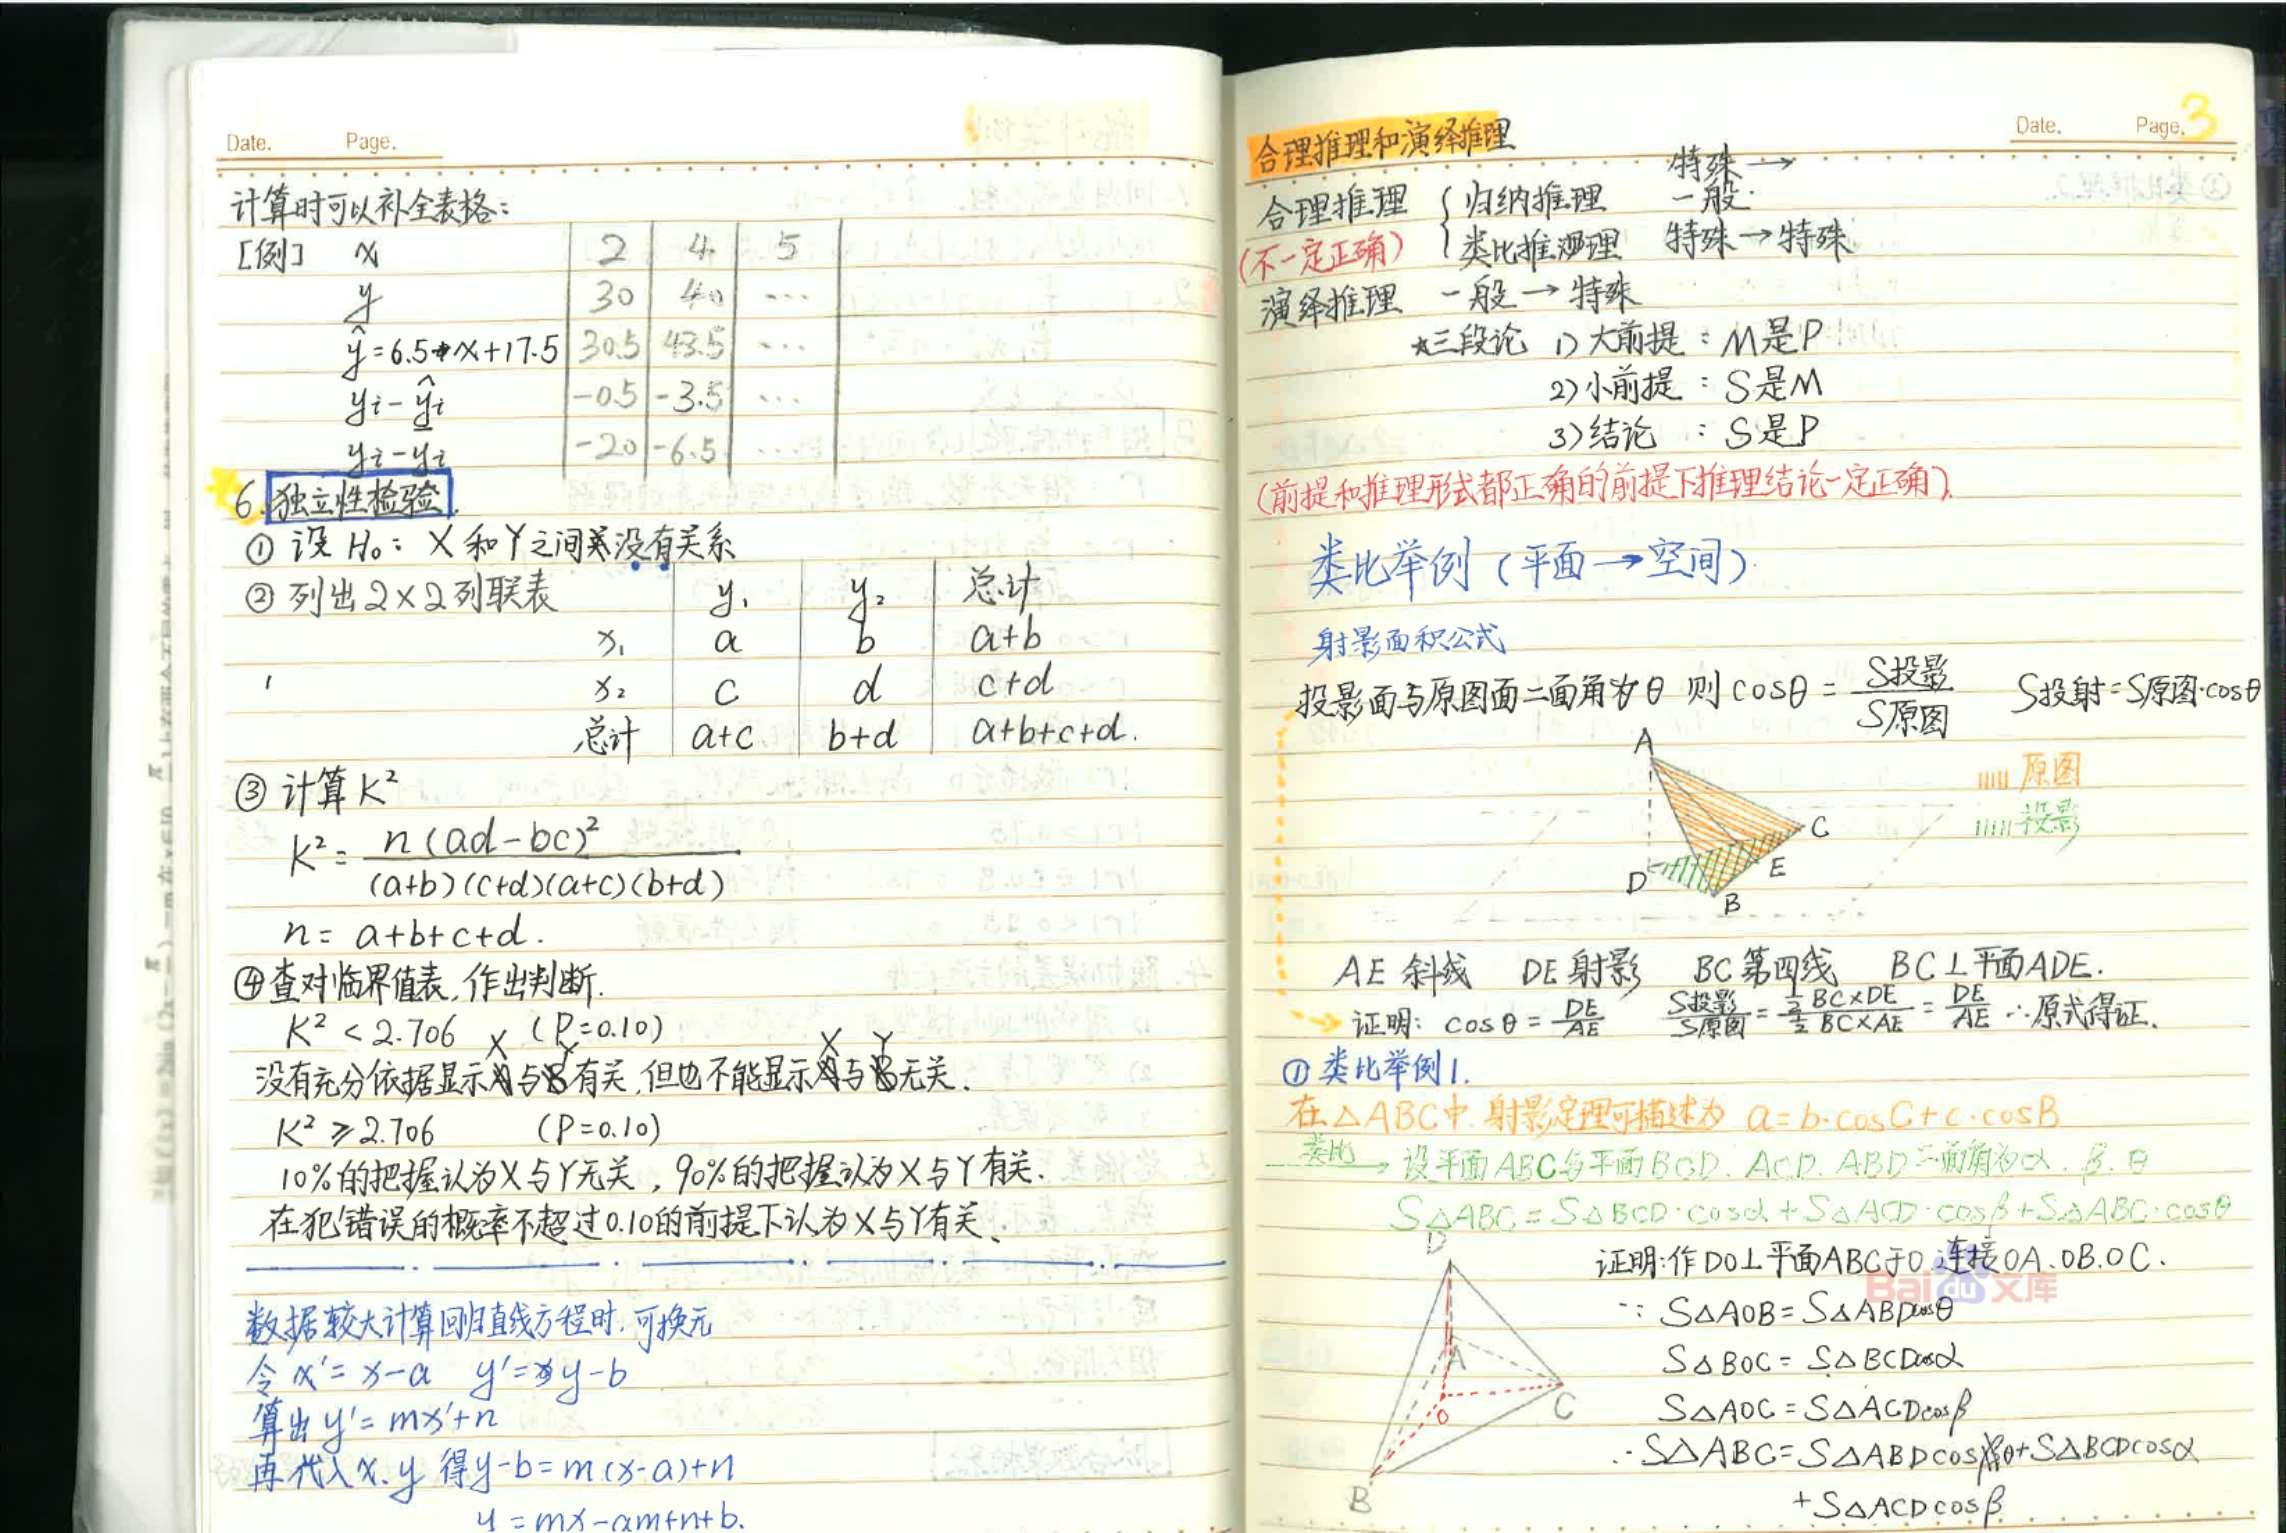 Date. Page.
计算时可以补全表格：
[例] x 2 4 5
y 30 40 …
ŷ=6.5x+17.5 30.5 43.5 …
yi-ŷi -0.5 -3.5 …
yi-y̅i -20 -6.5 …
6. 独立性检验
① 设 H₀：X 和 Y 之间没有关系
② 列出 2×2 列联表 y₁ y₂ 总计
x₁ a b a+b
x₂ c d c+d
总计 a+c b+d a+b+c+d.
③ 计算 K²
K² = n(ad-bc)² / (a+b)(c+d)(a+c)(b+d)
n = a+b+c+d.
④ 查对临界值表，作出判断.
K² < 2.706 (P=0.10)
没有充分依据显示X与Y有关，但也不能显示X与Y无关.
K² ≥ 2.706 (P=0.10)
10%的把握认为X与Y无关，90%的把握认为X与Y有关.
在犯错误的概率不超过0.10的前提下认为X与Y有关.
数据较大计算回归直线方程时，可换元
令 x'=x-a y'=y-b
算出 y'=mx'+n
再代入x、y 得 y-b=m(x-a)+n
y=mx-am+n+b.
Date. Page. 3
合理推理和演绎推理
合理推理 { 归纳推理 特殊→一般
(不一定正确) 类比推理 特殊→特殊
演绎推理 一般→特殊
★三段论 1) 大前提：M是P
2) 小前提：S是M
3) 结论：S是P
(前提和推理形式都正确的前提下推理结论一定正确).
类比举例 (平面→空间)
射影面积公式
投影面与原图面二面角为θ 则 cosθ = S投影/S原图 S投射=S原图·cosθ
A
原图
投影
C
D E
B
AE 斜线 DE 射影 BC 第四线 BC⊥平面ADE.
证明：cosθ = DE/AE S投影/S原图 = ½BC×DE / ½BC×AE = DE/AE ∴原式得证.
① 类比举例1.
在△ABC中，射影定理可描述为 a=b·cosC+c·cosB
类比→ 设平面ABC与平面BCD、ACD、ABD二面角为α、β、θ
S△ABC=S△BCD·cosα+S△ACD·cosβ+S△ABC·cosθ
证明：作DO⊥平面ABC于O 连接OA、OB、OC.
Bai文库
∵ S△AOB=S△ABDcosθ
S△BOC=S△BCDcosα
S△AOC=S△ACDcosβ
∴S△ABC=S△ABDcosθ+S△BCDcosα
+S△ACDcosβ
D
A
O C
B